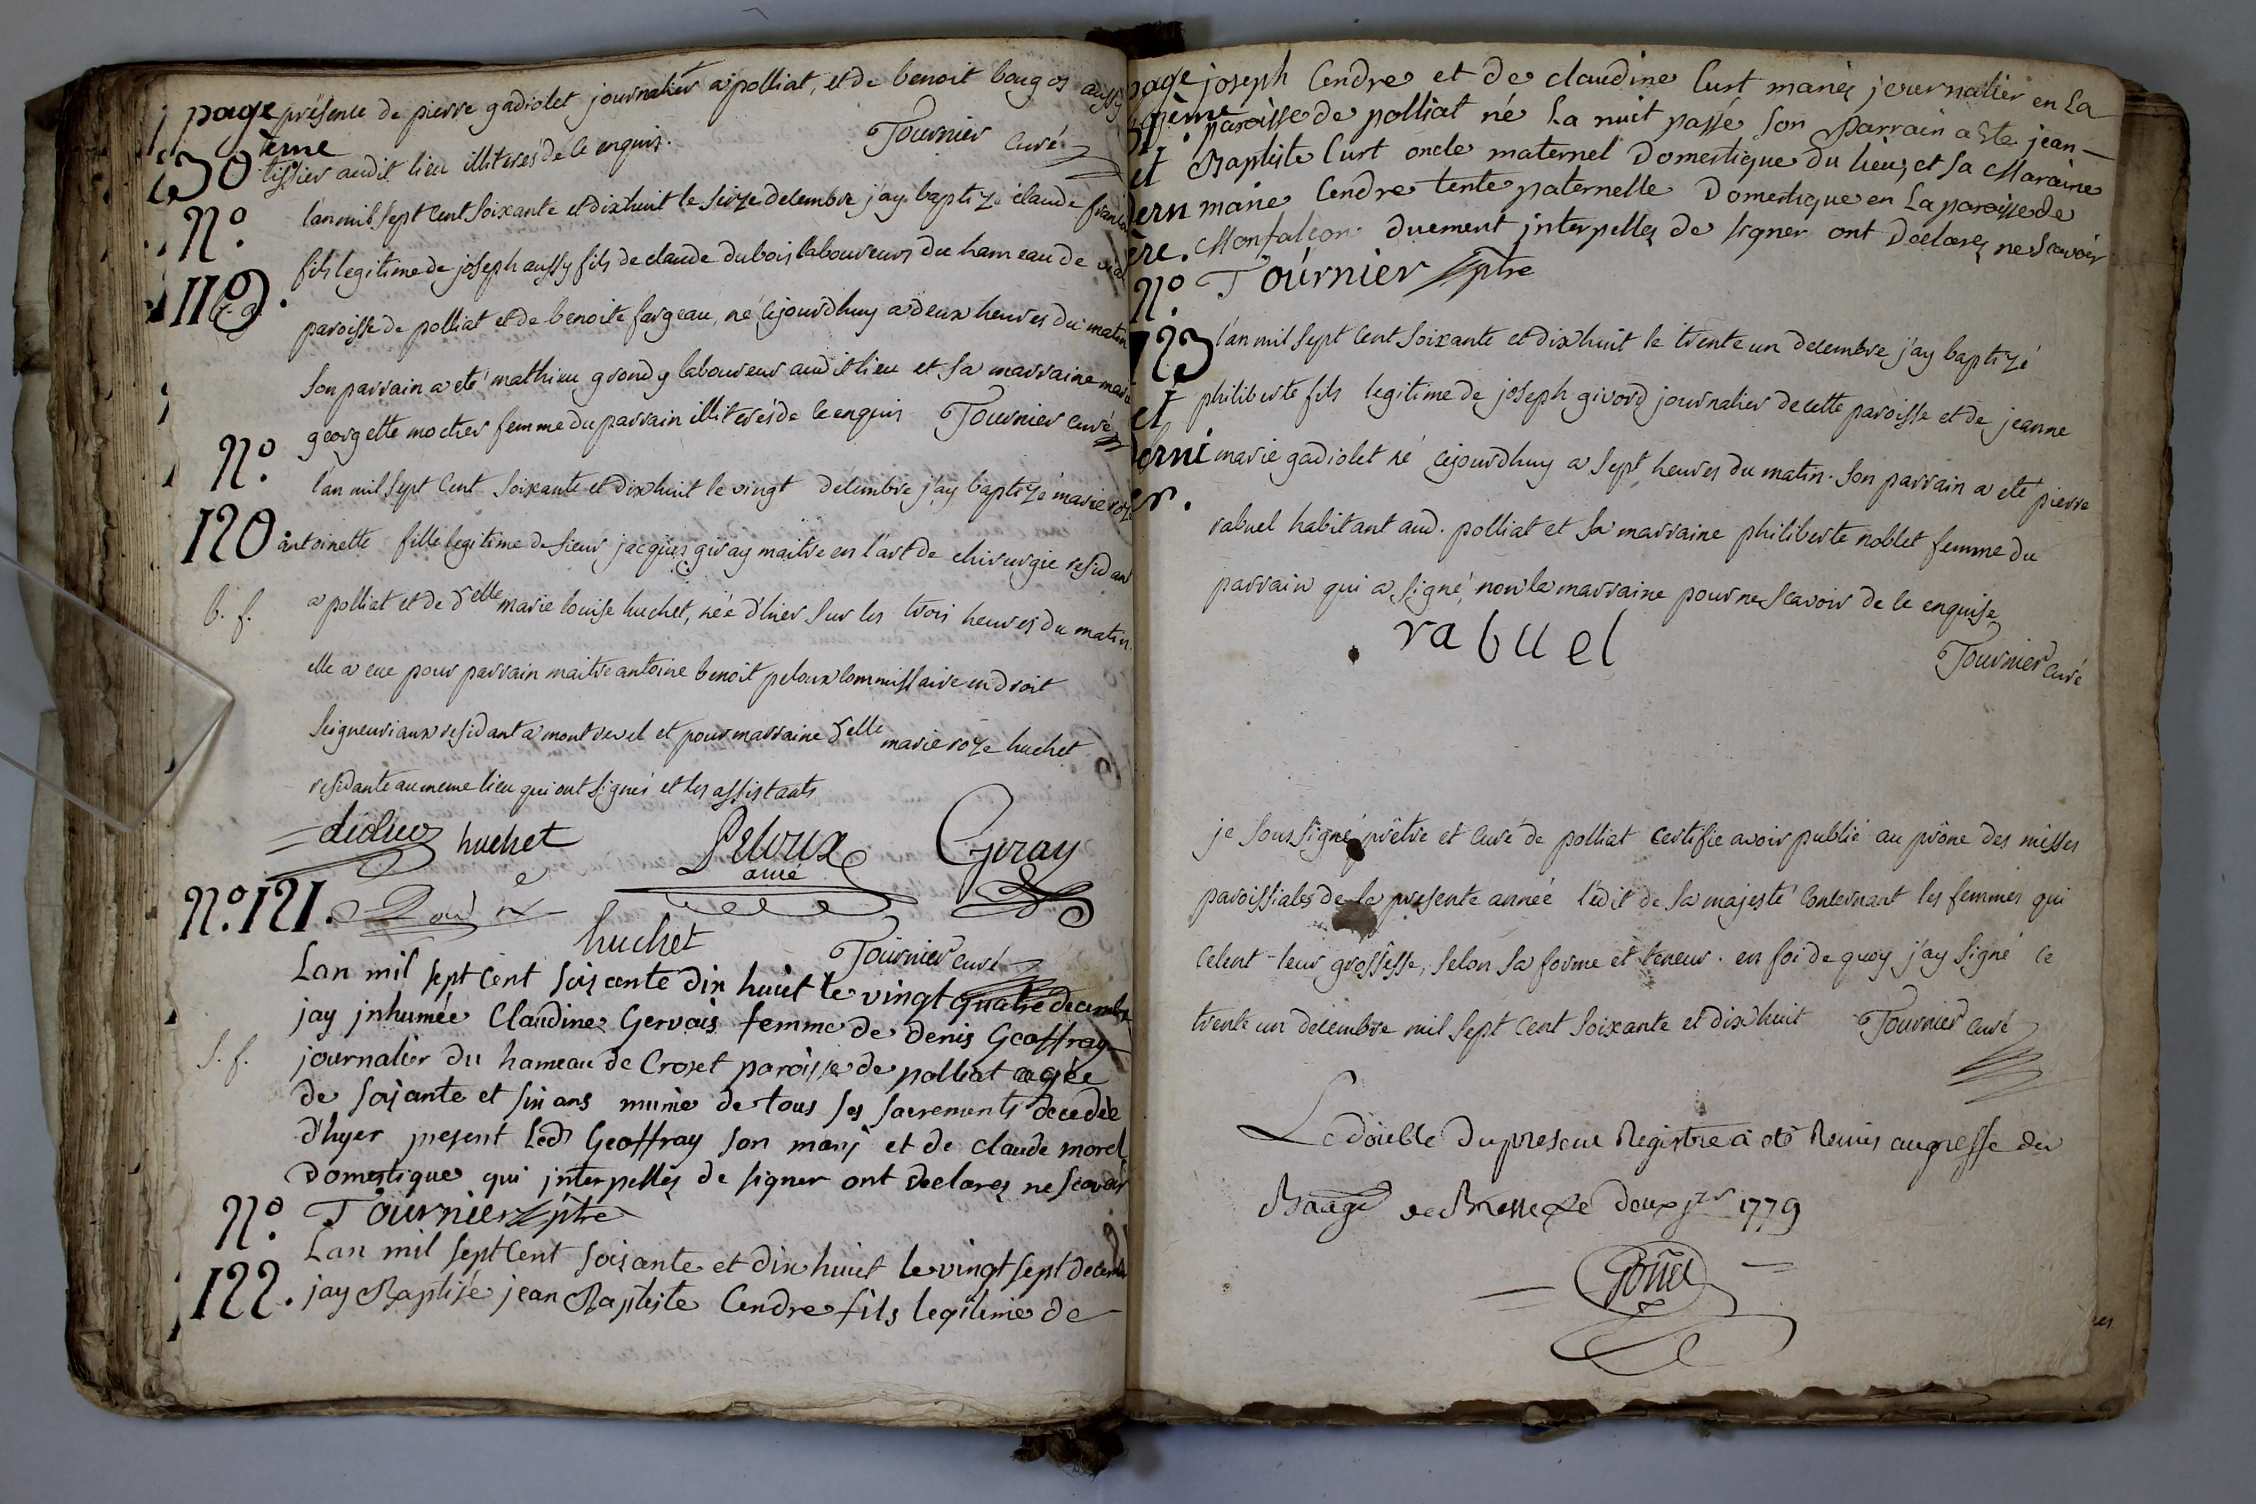 page présence de pierre gadiolet journalier a polliat, et de benoit bouges aussy
30ème tissier audit lieu illiterés de ce enquis. Tournier curé
N° 119. l'an mil sept cent soixante et dixhuit le seize decembre j'ay baptizé claude
fils legitime de joseph aussy fils de claude dubois laboureurs du hameau de
paroisse de polliat et de benoite fargeau, né cejourdhuy a deux heures du matin
son parrain a eté mathieu grondy laboureur audit lieu et sa marraine marie
georgette mocher femme du parrain illiterés de ce enquis Tournier curé
N° 120 l'an mil sept cent soixante et dixhuit le vingt decembre j'ay baptizé marie roze
antoinette fille legitime de sieur jacques giray maitre en l'art de chirurgie residant
b. f. a polliat et de delle marie louise huchet, née d'hier sur les trois heures du matin
elle a eue pour parrain maitre antoine benoit peloux commissaire en droit
seigneuriaux residant a montrevel et pour marraine delle marie roze huchet
residante au meme lieu qui ont signés et les assistants
huchet Peloux Giray
ainé
huchet Tournier curé
N° 121. Lan mil sept cent soixante dix huit le vingt quatre decembre
jay jnhumée Claudine Gervais femme de denis Geoffray
s. f. journalier du hameau de Croset paroisse de polliat agée
de soixante et six ans munie de tous ses sacrements decedée
d'hyer present led Geoffray son marj et de claude morel
domestique qui jnterpellés de signer ont declarez ne scavoir
N° Tournier ptre
Lan mil sept cent soixante et dix huit le vingt sept decembre
122. jay Baptisé jean Baptiste Cendre fils legitime de
page joseph Cendre et de claudine Curt mariés journalier en La
paroisse de polliat né La nuit passé son Parrain a Ete jean
et Baptiste Curt oncle maternel Domestique du lieu, et sa Maraine
marie Cendre tente paternelle Domestique en La paroisse de
Monfalcon duement jnterpellez de signer ont Declarez ne scavoir
N° Tournier ptre
123 l'an mil sept cent soixante et dixhuit le trente un decembre j'ay baptizé
et philiberte fils legitime de joseph givord journalier de cette paroisse et de jeanne
marie gadiolet né cejourdhuy a sept heures du matin. son parrain a eté pierre
rabuel habitant aud. polliat et sa marraine philiberte noblet femme du
parrain qui a signé, non la marraine pour ne scavoir de ce enquise
rabuel Tournier curé
je soussigné prêtre et curé de polliat certifie avoir publié au prône des messes
paroissiales de la presente année l'edit de sa majesté concernant les femmes qui
celent leur grossesse, selon sa forme et teneur. en foi de quoy j'ay signé ce
trente un decembre mil sept cent soixante et dixhuit Tournier curé
Le double du present Registre a eté Remis au greffe du
Baage de Bresse Le deux jer 1779